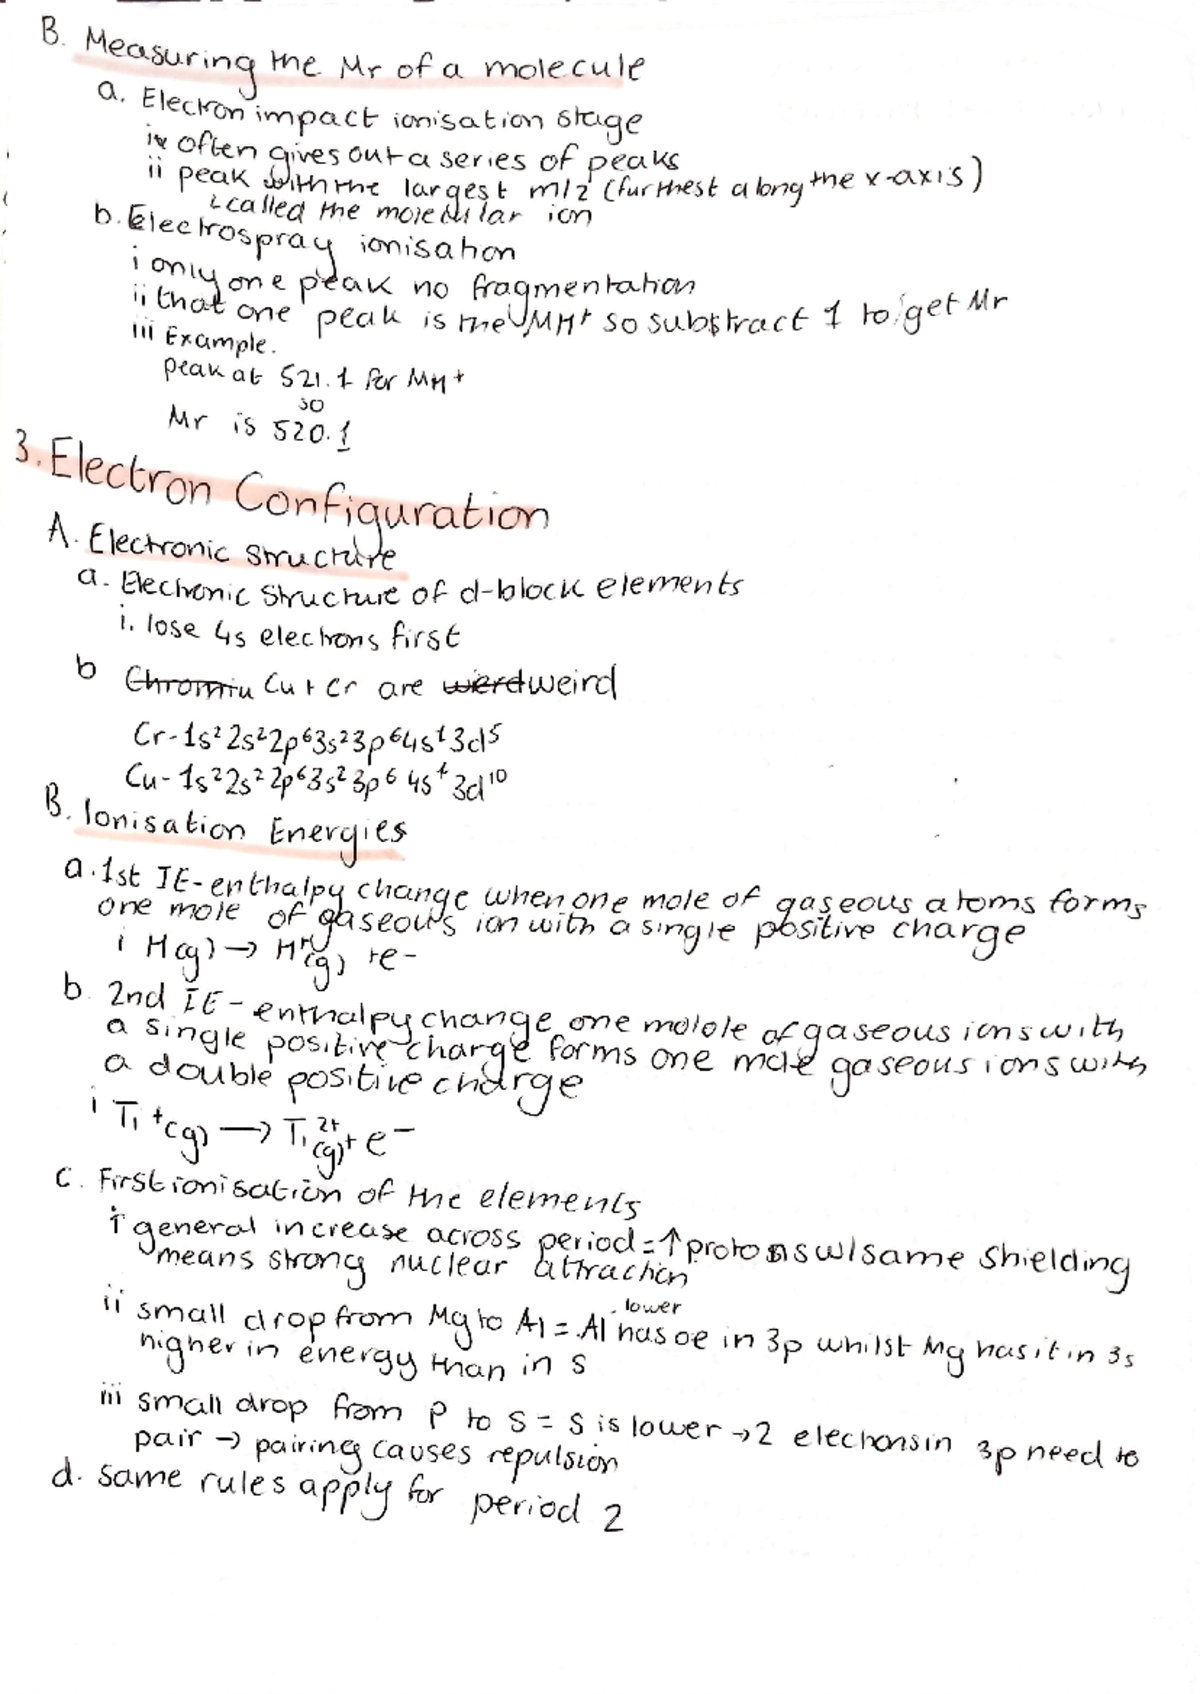 B. Measuring the Mr of a molecule
a. Electron impact ionisation stage
i often gives out a series of peaks
ii peak with the largest m/z (furthest along the x-axis)
is called the molecular ion
b. Electrospray ionisation
i only one peak no fragmentation
ii that one peak is the MH⁺ so substract 1 to get Mr
iii Example.
peak at 521.1 for MH⁺
so
Mr is 520.1
3. Electron Configuration
A. Electronic structure
a. Electronic Structure of d-block elements
i. lose 4s electrons first
b Chromiu Cu + Cr are wierd weird
Cr-1s²2s²2p⁶3s²3p⁶4s¹3d⁵
Cu-1s²2s²2p⁶3s²3p⁶4s¹3d¹⁰
B. Ionisation Energies
a. 1st IE-enthalpy change when one mole of gaseous atoms forms
one mole of gaseous ion with a single positive charge
i H(g) → H⁺(g) + e-
b. 2nd IE - enthalpy change one molole of gaseous ions with
a single positive charge forms one mole gaseous ions with
a double positive charge
i Ti⁺(g) → Ti²⁺(g) + e⁻
C. First ionisation of the elements
i general increase across period = ↑ protons w/same shielding
means strong nuclear attraction
ii small drop from Mg to Al = Al lower has oe in 3p whilst Mg has it in 3s
higher in energy than in s
iii small drop from P to S = S is lower → 2 electrons in 3p need to
pair → pairing causes repulsion
d. same rules apply for period 2